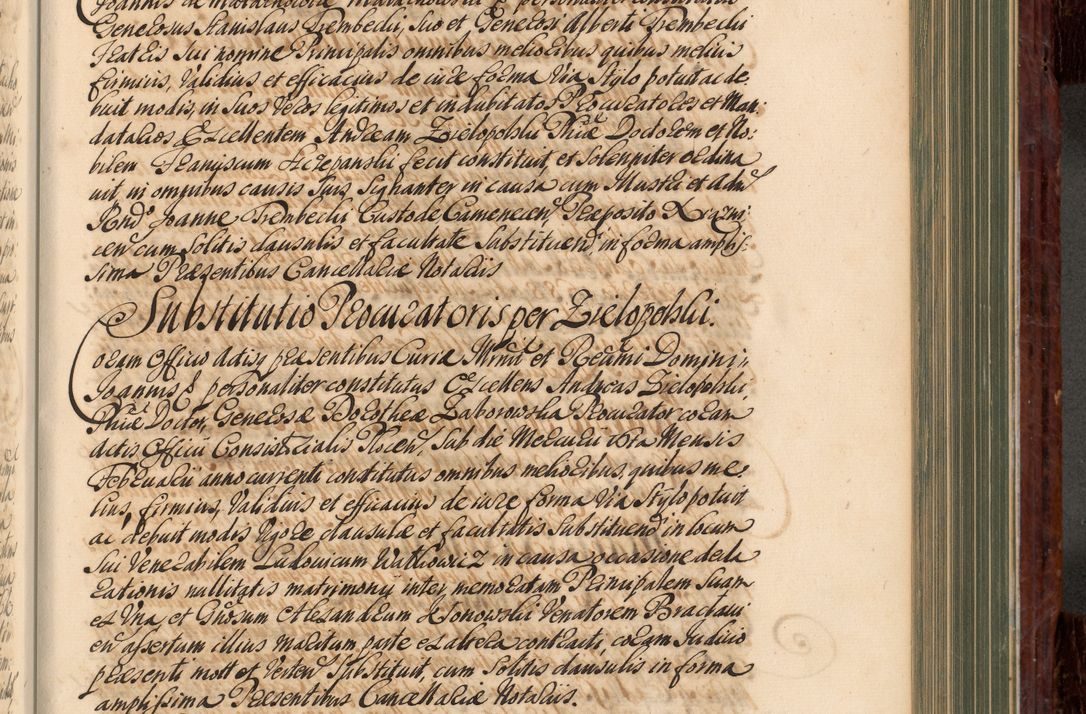 Generosus Stanislaus Trembecki, suo et Generosi Alberti Trembecki
Fratris sui nomine Principalis omnibus melioribus quibus melius
firmius, validius et efficacius de iure forma via stylo potuit ac de
buit modis, in suos veros legitimos et indubitatos Procuratores et Man:
datarios Excellentem Andream Zielopolski Phiæ Doctorem et No:
bilem Franciscum Szczepanski fecit constituit, et solenniter ordina
uit, in omnibus causis suis signanter in causa cum Illustri et Adm
Rndo Joanne Trembecki Custode Camenecen Præposito
cen cum solitis clausulis et facultate substituen in forma amplis
sima Præsentibus Cancellariæ Notariis
Substitutio Procuratoris per Zielopolski.
Coram Officio Actisq præsentibus Curiæ Illrmi et Reverdmi Domini
Joannis personaliter constitutus Excellens Andreas Zielopolski,
Phiæ Doctor, Generosæ Dorotheæ Zaborowska Procurator coram
actis Officii Consistorialis sub die Mercurii Mensis
Februarii anno currenti constitutus omnibus melioribus, quibus me
lius, firmius, validius et efficacius de iure forma via stylo potuit
ac debuit modis vigore clausulæ et facultatis substituendi in locum
sui Venerabilem Ludovicum Watkowicz in causa occasione decla
rationis nullitatis matrimonii inter memoratam Principalem suam
ex una, et Gnosum Alexandrum Venatorem Braclavi
en assertum illius maritum parte ex altera contracti, coram Judicio
præsenti mott et verten substituit, cum solitis clausulis in forma
amplissima Præsentibus Cancellariæ Notariis.